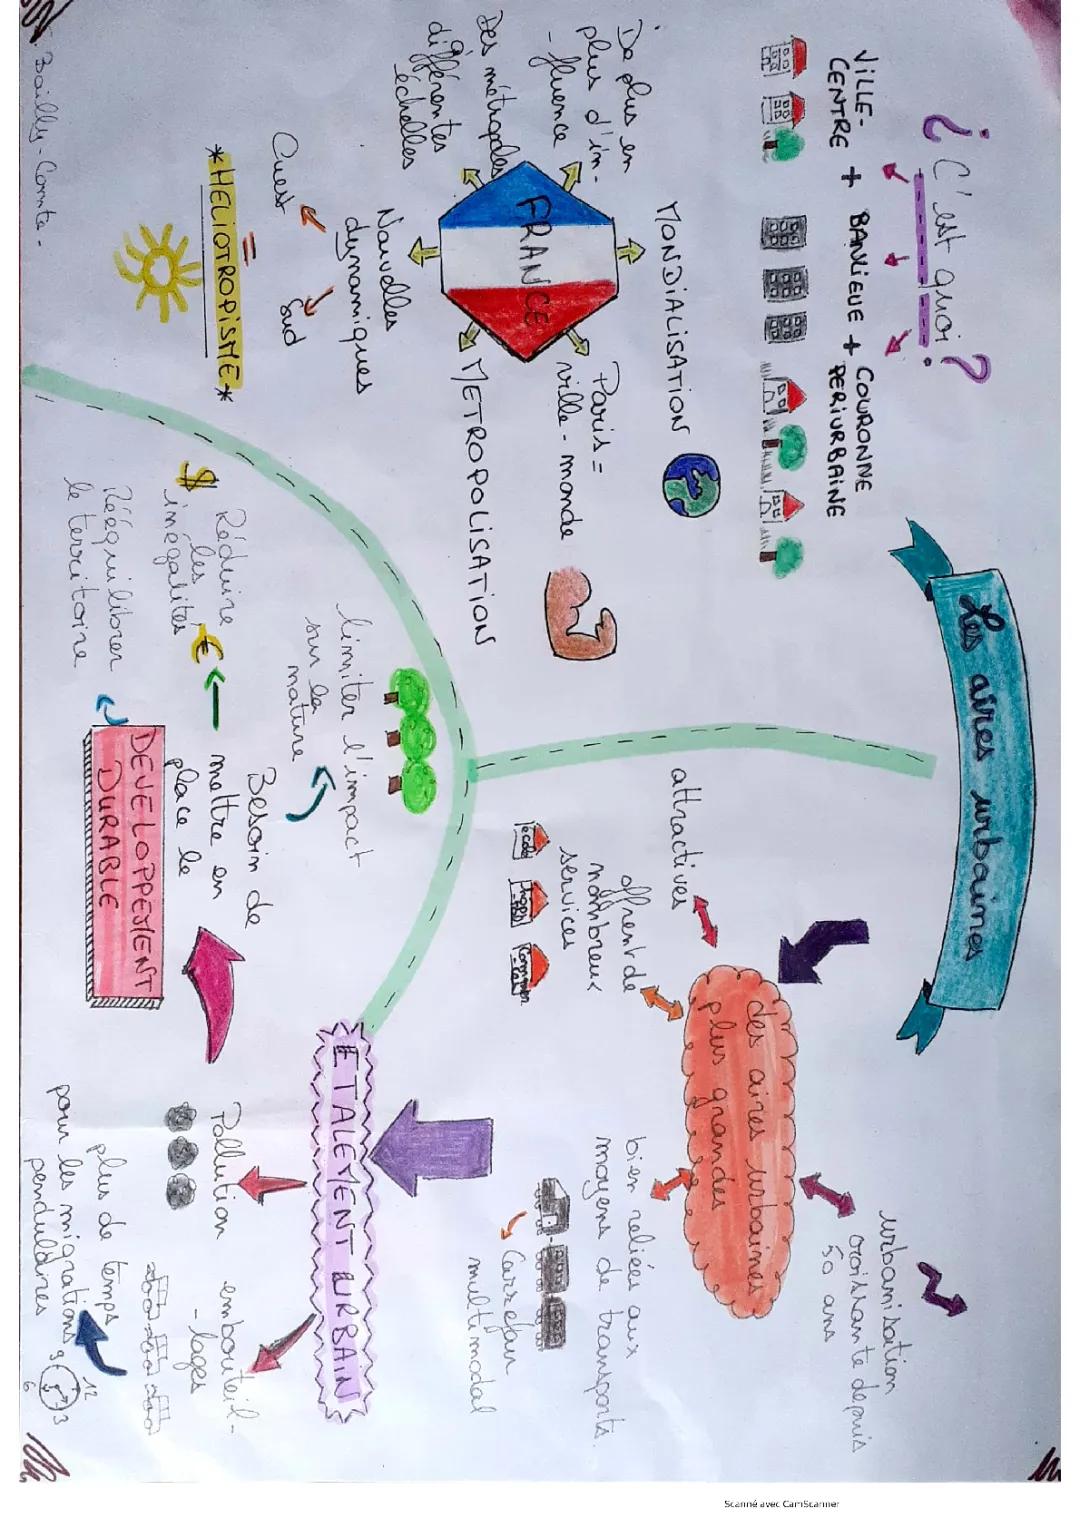 Les aires urbaines
¿ C'est quoi ?
VILLE-
CENTRE
+
BANLIEUE
+
COURONNE
PERIURBAINE
MONDIALISATION
De plus en
plus d'in-
-fluence
Des métropoles
différentes
échelles
FRANCE
Paris =
ville-monde
METROPOLISATION
Nouvelles
dynamiques
Ouest
Sud
=
*HELIOTROPISME*
Bailly-Comte-
urbanisation
croissante depuis
50 ans
des aires urbaines
plus grandes
attractives
offrent de
nombreux
services
école
bien reliées aux
moyens de transports.
Carrefour
multimodal
ETALEMENT URBAIN
Pollution
embouteil-
-lages
plus de temps
pour les migrations
pendulaires
12
9
3
6
limiter l'impact
sur la
nature
Besoin de
mettre en
place le
DEVELOPPEMENT
DURABLE
Réduire
les
inégalités
$
€
Rééquilibrer
le territoire
Scanné avec CamScanner